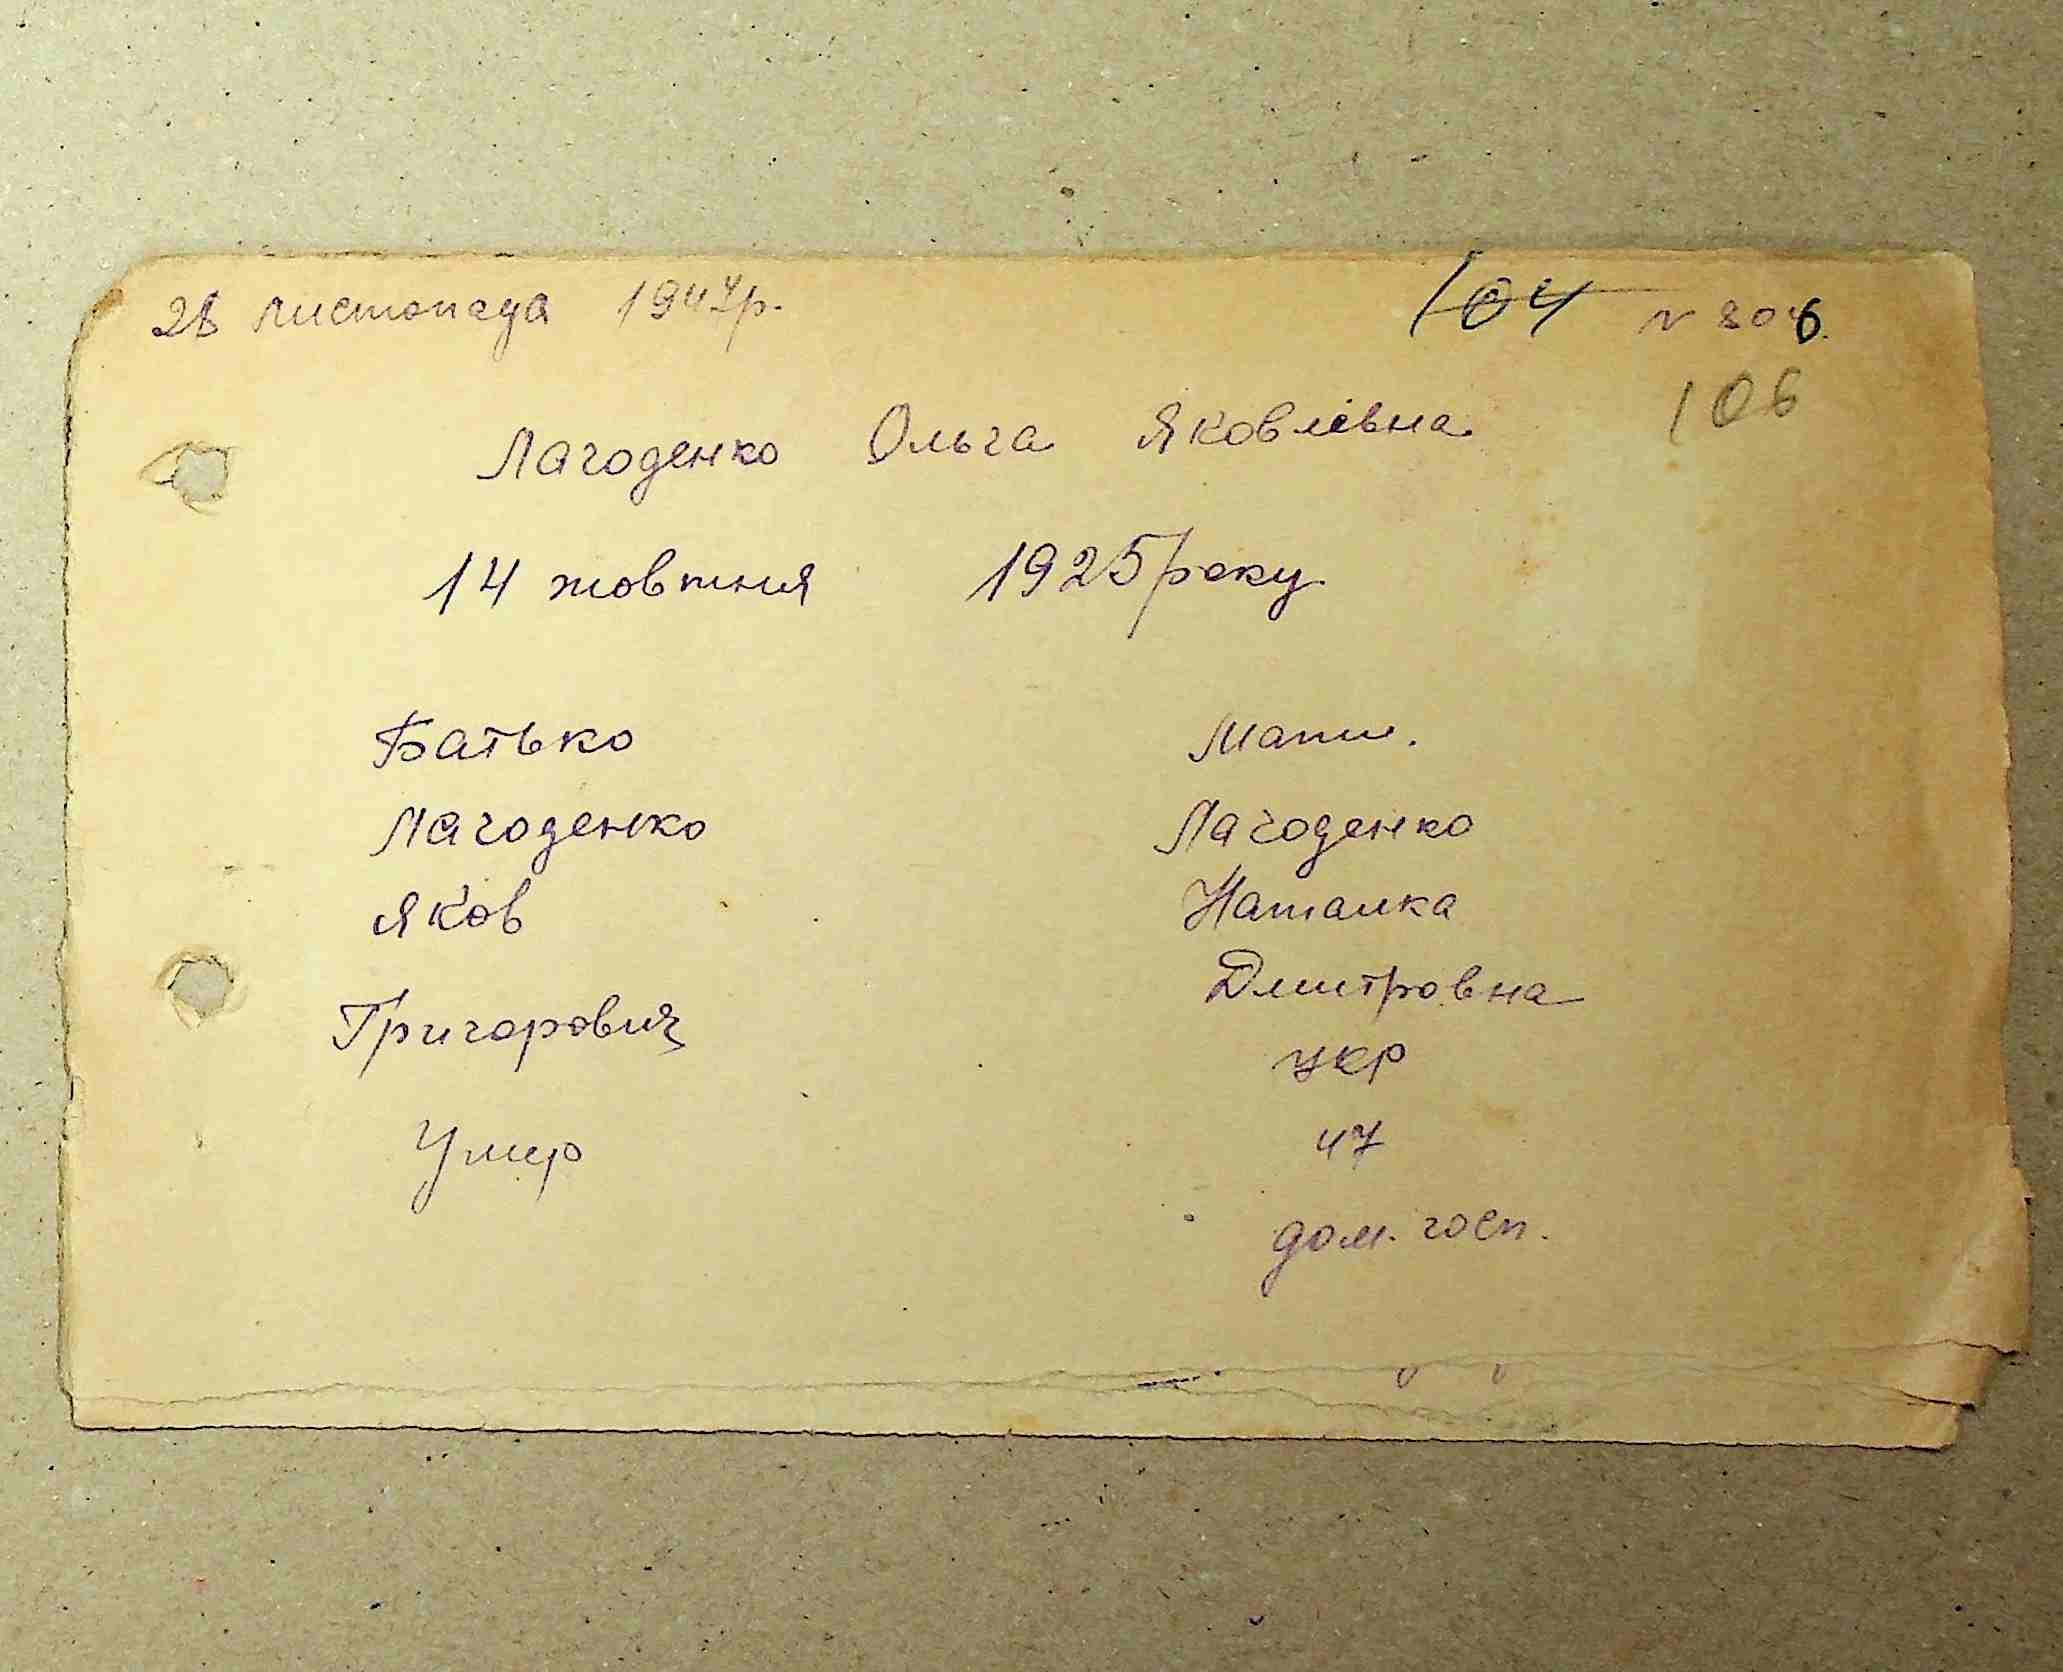 28 листопада 1947р. 104 N 806.
106
Лагоденко Ольга Яковлевна
14 жовтня 1925 року
Батько Мати.
Лагоденко Лагоденко
Яков Наталка
Григорович Дмитровна
укр
Умер 47
дом. госп.